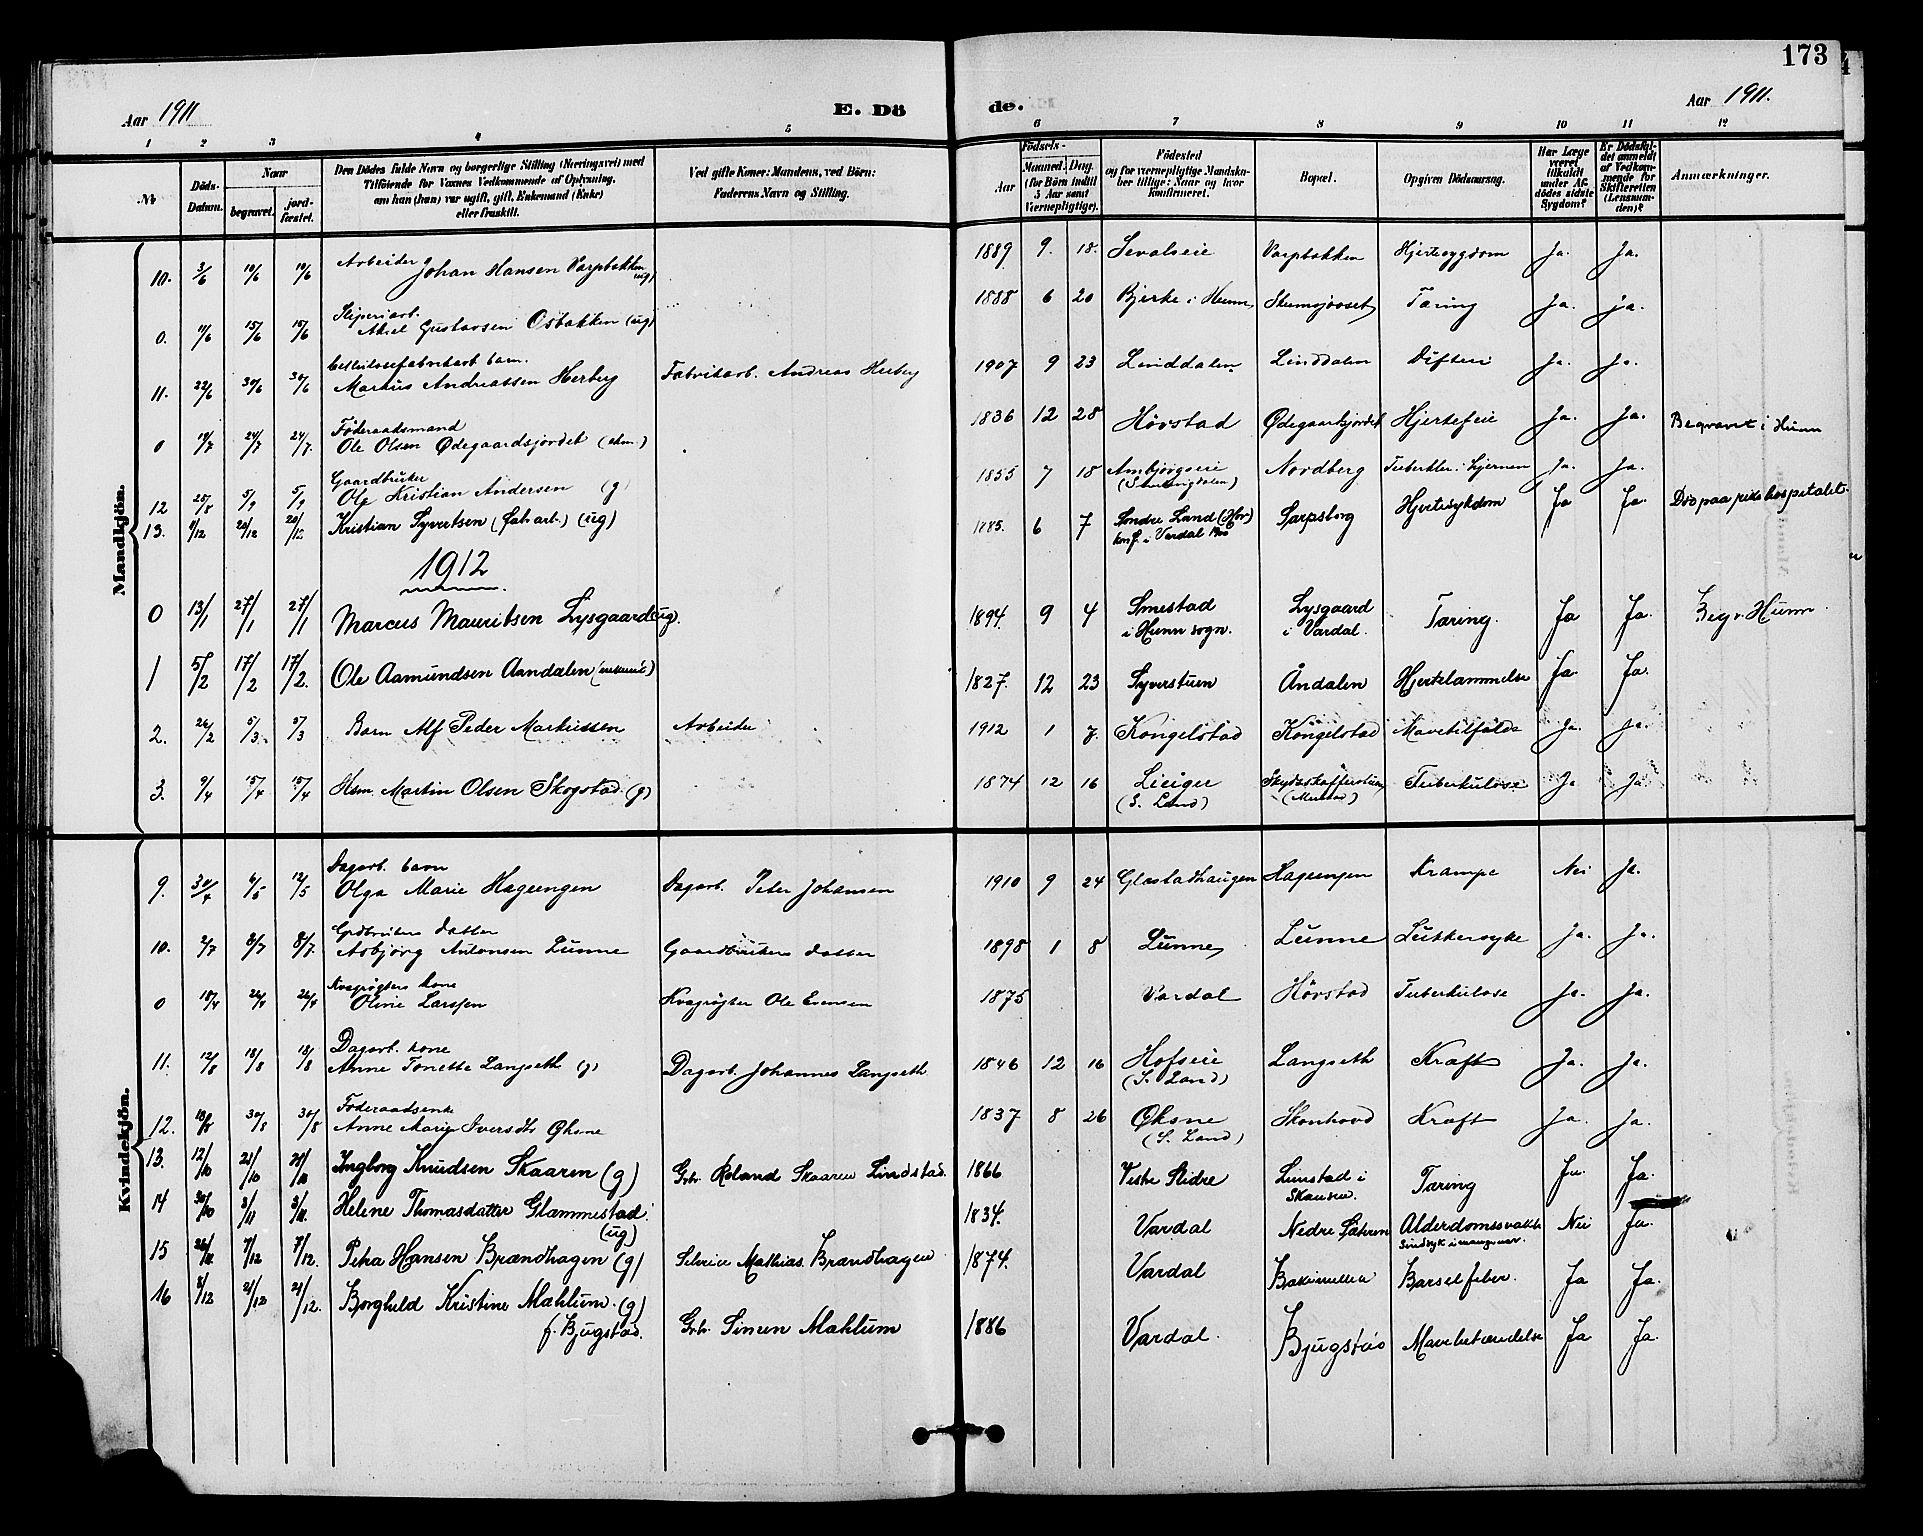 173
Aar 1911
E. Dö de.
Aar 1911.
1 2 3 4 5 6 7 8 9 10 11 12
№
Döds-Datum.
Naar
begravet.
jord-fæstet.
Den Dödes fulde Navn og borgerlige Stilling (Næringsvei) med
Tilföiende for Voxnes Vedkommende af Oplysning,
om han (hun) var ugift, gift, Enkemand (Enke)
eller fraskilt.
Ved gifte Koner: Mandens, ved Börn:
Faderens Navn og Stilling.
Födsels-
Aar
Maaned. Dag.
(for Börn indtil
5 Aar samt
Værnepligtige).
Födested
og for værnepligtige Mandska-
ber tillige: Naar og hvor
konfirmeret.
Bopæl.
Opgiven Dödsaarsag.
Har Læge
været
tilkaldt
under Af-
dödes sidste
Sygdom?
Er Dödsfal-
det anmeldt
af Vedkom-
mende for
Skifteretten
(Lensman-
den)?
Anmærkninger.
Mandkjön.
10. 3/6 10/6 10/6 Arbeider Johan Hansen Varpbakken (ug) 1889 9. 18. Sevalseie Varpbakken Hjertesygdom Ja. Ja.
0. 11/6 15/6 15/6 Sliperiarb. Aksel Gustavsen Osbakken (ug) 1888 6 20 Bjerke i Hunn Taring Ja. Ja.
11. 22/6 30/6 30/6 Cellulosefabrikarb. barn. Markus Andreassen Herberg Fabrikarb. Andreas Herberg 1907 9 23 Linddalen Linddalen Difteri Ja. Ja.
0 19/7 24/7 24/7. Föderaadsmand Ole Olsen Ødegaardsjordet (ekm.) 1836 12 28 Hövstad Ødegaardsjordet Hjertefeil Ja. Ja. Begravet i Hunn
12 28/8 5/9 5/9 Gaardbruker Ole Kristian Andersen (g) 1855 7 18 Ambjörgseie Nordberg Tuberkler i hjernen Ja. Ja. Död paa rikshospitalet.
13. 11/12 20/12 20/12 Kristian Syvertsen (fabarb.) (ug) 1885. 6 7 Söndre Land (Hov) konf. i Vardal 1900 Sarpsborg Hjertesykdom Ja Ja.
1912
0 13/1 27/1 27/1 Marcus Mauritsen Lysgaard ug. 1894. 9 4 Smestad i Hunn sogn. Lysgaard i Vardal. Taring. Ja Ja. Begr. Hunn.
1 5/2 17/2 17/2. Ole Aamundsen Aandalen (enkem.) 1827. 12 23 Syverstuen Åndalen Hjertelammelse Ja. Ja.
2. 26/2 5/3. 5/3 Barn Alf Peder Markussen Arbeider 1912 1 7. Kongelstad Kongelstad Mavetilfælde Ja. Ja.
3. 9/4 15/4 15/4 Hsm. Martin Olsen Skogstad. (g) 1874 12 16 (S. Land) Tuberkulose Ja Ja.
Kvindekjön.
9. 30/4 6/5 12/5 Dagarb. barn Olga Marie Hageengen Dagarb. Peter Johansen 1910 9 24 Glæstadhaugen Hageengen Krampe Nei Ja.
10. 2/7 8/7 8/7. Grdbrukers datter Asbjörg Antonsen Lunne Gaardbrukers datter 1898 1 8 Lunne Lunne Sukkersyke Ja. Ja.
0 18/4 26/4 26/4 Kvægrögters kone Oline Larssen Kvægrögter Ole Evensen 1875 Vardal Hövstad Tuberkulose Ja. Ja.
11. 12/8 18/8 18/8 Dagarb. kone Anne Tonette Langseth (g) Dagarb. Johannes Langseth 1846 12 16 Hofseie (S. Land) Langseth Kræft Ja. Ja.
12. 18/8 30/8 30/8 Föderaadsenke Anne Marie Iversdtr Øksne 1837 8 26 Øksne (S. Land) Skonhovd Kræft Ja. Ja.
13. 12/10 21/10 21/10 Ingborg Knudsen Skaaren (g) Grbr. Roland Skaaren Lindstad. 1866 Vestre Slidre Linstad i Skansen. Taring Ja. Ja.
14 30/10 3/11 3/11. Helene Thomasdatter Glæmmestad. (ug) 1834. Vardal Nedre Sætren Alderdomssvakhet Sindsyk i mange aar. Nei Ja.
15 26/11. 7/12 7/12. Petra Hansen Brændhagen (g) Mathias Brændhagen 1874. Vardal Barselfeber. Ja Ja.
16 8/12 21/12 21/12. Borghild Kristine Mæhlum. (g) f. Bjugstad. Grbr. Simen Mæhlum 1886 Vardal. Bjugstad Mavebetændelse Ja Ja.